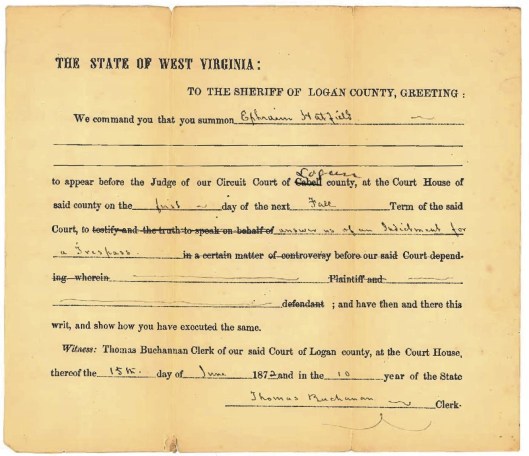 THE STATE OF WEST VIRGINIA:
TO THE SHERIFF OF LOGAN COUNTY, GREETING:
We command you that you summon Ephraim Hatfield
Logan
to appear before the Judge of our Circuit Court of Cabell county, at the Court House of
said county on the first day of the next Fall Term of the said
Court, to testify and the truth to speak on behalf of answer us of an Indictment for
a Trespass in a certain matter of controversy before our said Court depend-
ing wherein Plaintiff and
defendant; and have then and there this
writ, and show how you have executed the same.
Witness: Thomas Buchannan Clerk of our said Court of Logan county, at the Court House,
thereof the 15th. day of June 1872 and in the 10 year of the State
Thomas Buchanan Clerk.